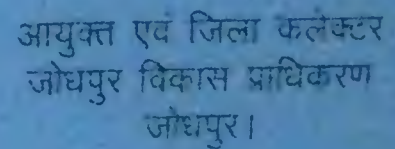 आयुक्त एवं जिला कलेक्टर
जोधपुर विकास प्राधिकरण
जोधपुर।